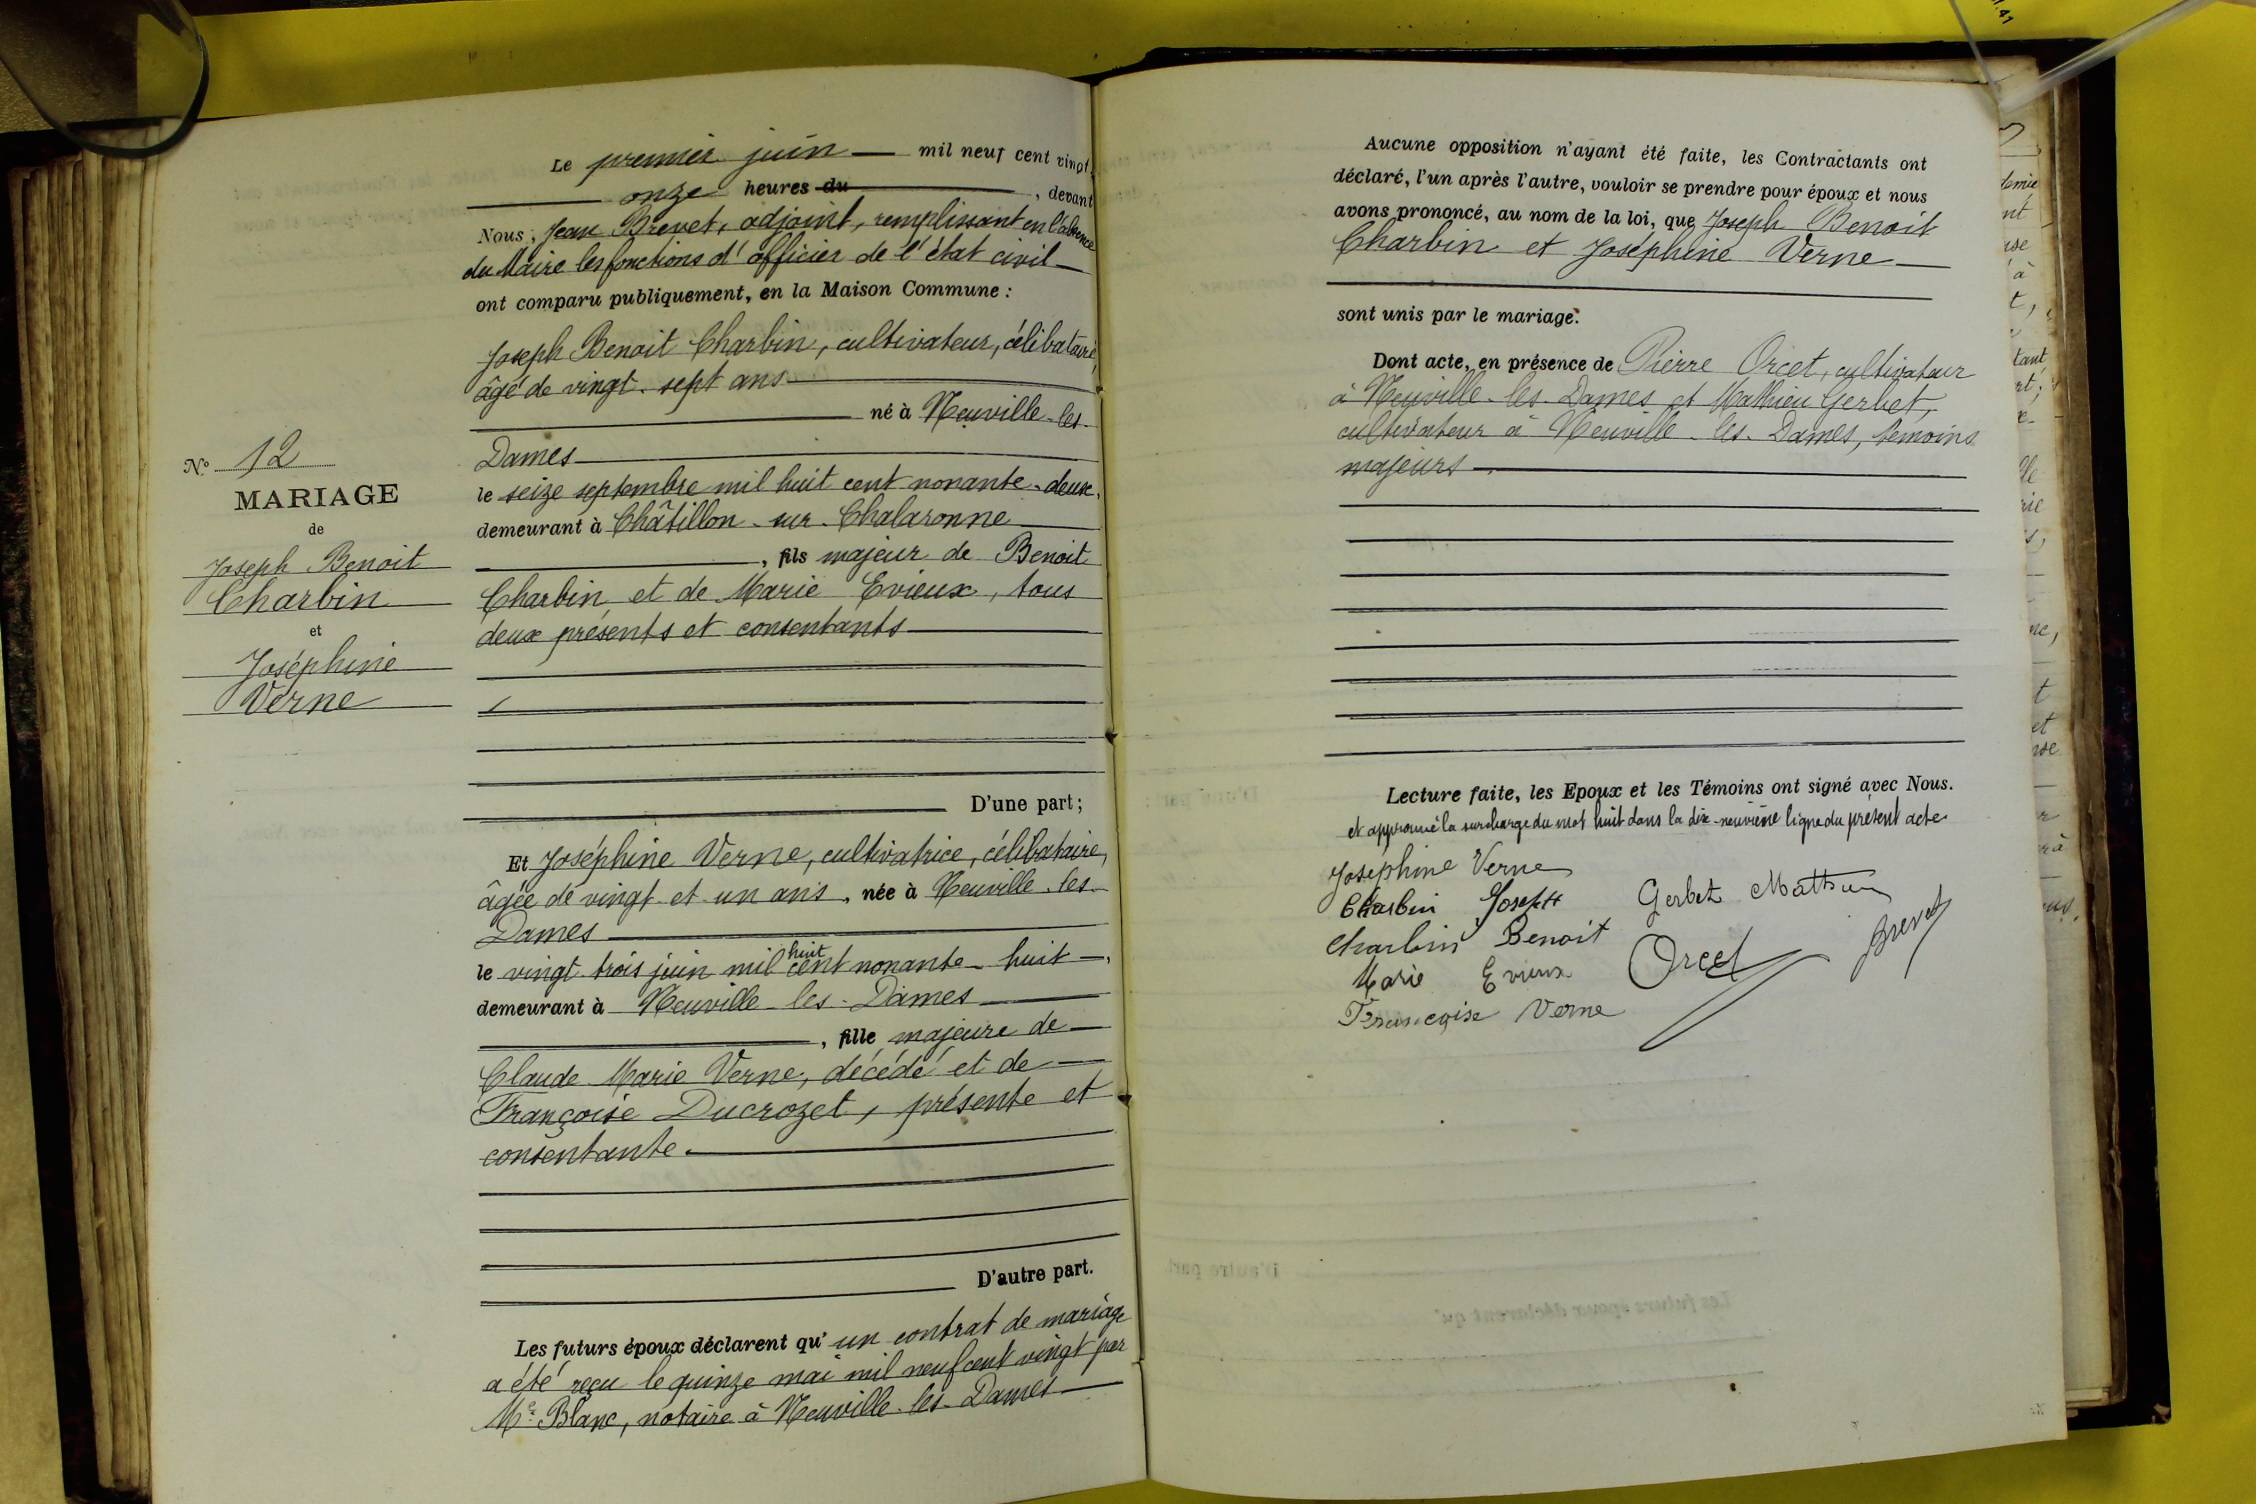 N° 12
MARIAGE
de
Joseph Benoit
Charbin
et
Joséphine
Verne
Le premier juin — mil neuf cent vingt,
onze heures du , devant
Nous, Jean Brevet, adjoint, remplissant en l'absence
du Maire les fonctions d'officier de l'état civil —
ont comparu publiquement, en la Maison Commune :
Joseph Benoit Charbin, cultivateur, célibataire,
âgé de vingt-sept ans —
né à Neuville-les-
Dames —
le seize septembre mil huit cent nonante-deux,
demeurant à Châtillon-sur-Chalaronne —
, fils majeur de Benoit
Charbin et de Marie Evieux, tous
deux présents et consentants —
D'une part ;
Et Joséphine Verne, cultivatrice, célibataire,
âgée de vingt et un ans, née à Neuville-les-
Dames —
le vingt-trois juin mil huit cent nonante-huit —,
demeurant à Neuville-les-Dames —
, fille majeure de —
Claude Marie Verne, décédé et de —
Françoise Ducrozet, présente et
consentante. —
D'autre part.
Les futurs époux déclarent qu'un contrat de mariage
a été reçu le quinze mai mil neuf cent vingt par
Me Blanc, notaire à Neuville-les-Dames —
Aucune opposition n'ayant été faite, les Contractants ont
déclaré, l'un après l'autre, vouloir se prendre pour époux et nous
avons prononcé, au nom de la loi, que Joseph Benoit
Charbin et Joséphine Verne —
sont unis par le mariage.
Dont acte, en présence de Pierre Orcet, cultivateur
à Neuville-les-Dames et Mathieu Gerbet,
cultivateur à Neuville-les-Dames, témoins
majeurs —
Lecture faite, les Epoux et les Témoins ont signé avec Nous.
et approuvé la surcharge du mot huit dans la dix-neuvième ligne du présent acte
Joséphine Verne
Charbin Joseph Gerbet Mathieu
Charbin Benoit Orcet Brevet
Marie Evieux
Françoise Verne
41